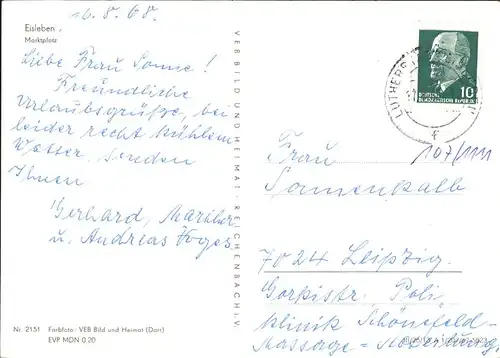 16.8.68.
Eisleben
Marktplatz
Liebe Frau Sonne!
Freundliche
Urlaubsgrüße, bei
leider recht kühlem
Wetter, senden
Ihnen
Gerhard,
u. Andreas
Nr. 2151 Farbfoto: VEB Bild und Heimat (Dörr)
EVP MDN 0.20
VEB BILD UND HEIMAT REICHENBACH i. V.
DEUTSCHE
DEMOKRATISCHE REPUBLIK
10
LUTHERST
f
107/1111
Frau
Sonnenkalb
7024 Leipzig
Gorkistr. Poli-
klinik Schönefeld
Massage =